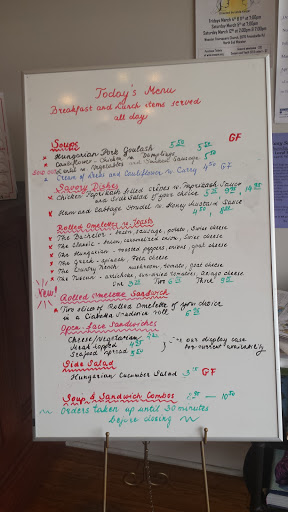 Fridays March 4th & 11th at 7:00pm
Saturday March 5th at 7:00pm
Saturday March 12th at 2:00pm & 7:00pm
Today's Menu
Breakfast and Lunch items served
all day
Soups GF
Hungarian Pork Goulash 5.50
Cauliflower - Chicken w Dumplings 5.50
Lentil w Vegetables and Smoked Sausage 5.50
Cream of Leeks and Cauliflower w Curry 4.50 GF
Savory Dishes
Chicken Paprikash filled Crêpes w Paprikash Sauce
and Side Salad of your choice
Ham and Cabbage Strudel w Honey Mustard Sauce
Rolled Omelettes w Toasts
The Bachelor - bacon, sausage, potato, Swiss cheese
The Classic - bacon, caramelized onion, Swiss cheese
The Hungarian - roasted peppers, onions, goat cheese
The Greek - spinach, Feta cheese
The Country French - mushroom, tomato, goat cheese
The Tuscan - artichoke, sun-dried tomatoes, Asiago cheese
One Two Three
New!
Rolled Omelette Sandwich
Two slices of Rolled Omelette of your choice
in a Ciabatta Sandwich roll
Open-face Sandwiches
Cheese/Vegetarian
Meat topped
Seafood Spread
in our display case
for current availability
Side Salad
Hungarian Cucumber Salad GF
Soup & Sandwich Combos
Orders taken up until 30 minutes
before closing